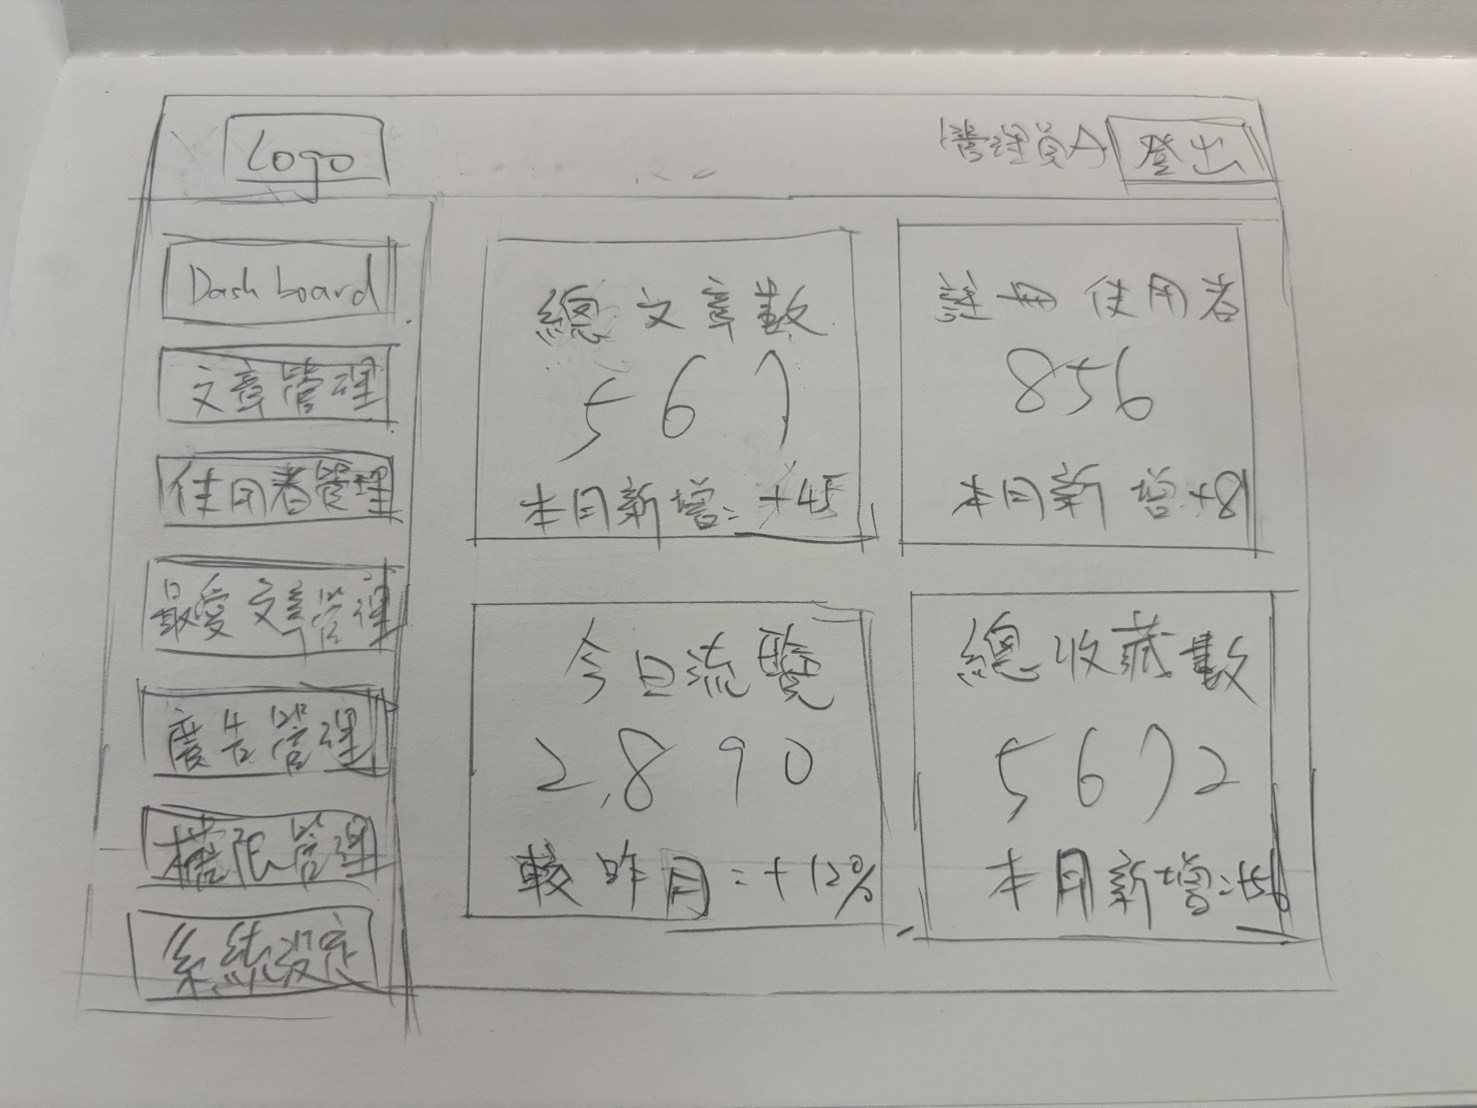 Logo
管理員A
登出
Dashboard
文章管理
使用者管理
最愛文章管理
廣告管理
權限管理
系統設定
總文章數
567
本月新增:+45
註冊使用者
856
本月新增+81
今日流覽
2,890
較昨月:+12%
總收藏數
5672
本月新增:+56